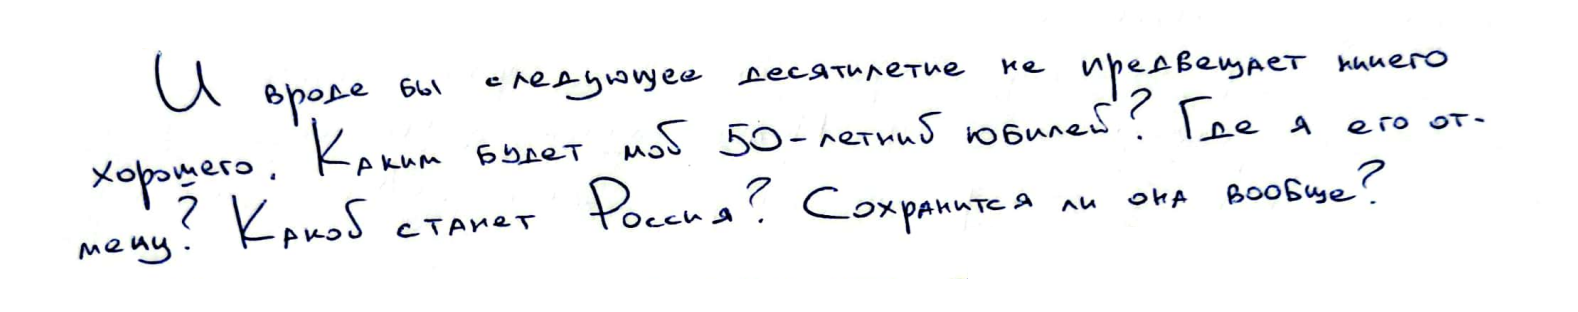 И вроде бы следующее десятилетие не предвещает ничего
хорошего. Каким будет мой 50-летний юбилей? Где я его от-
мечу? Какой станет Россия? Сохранится ли она вообще?